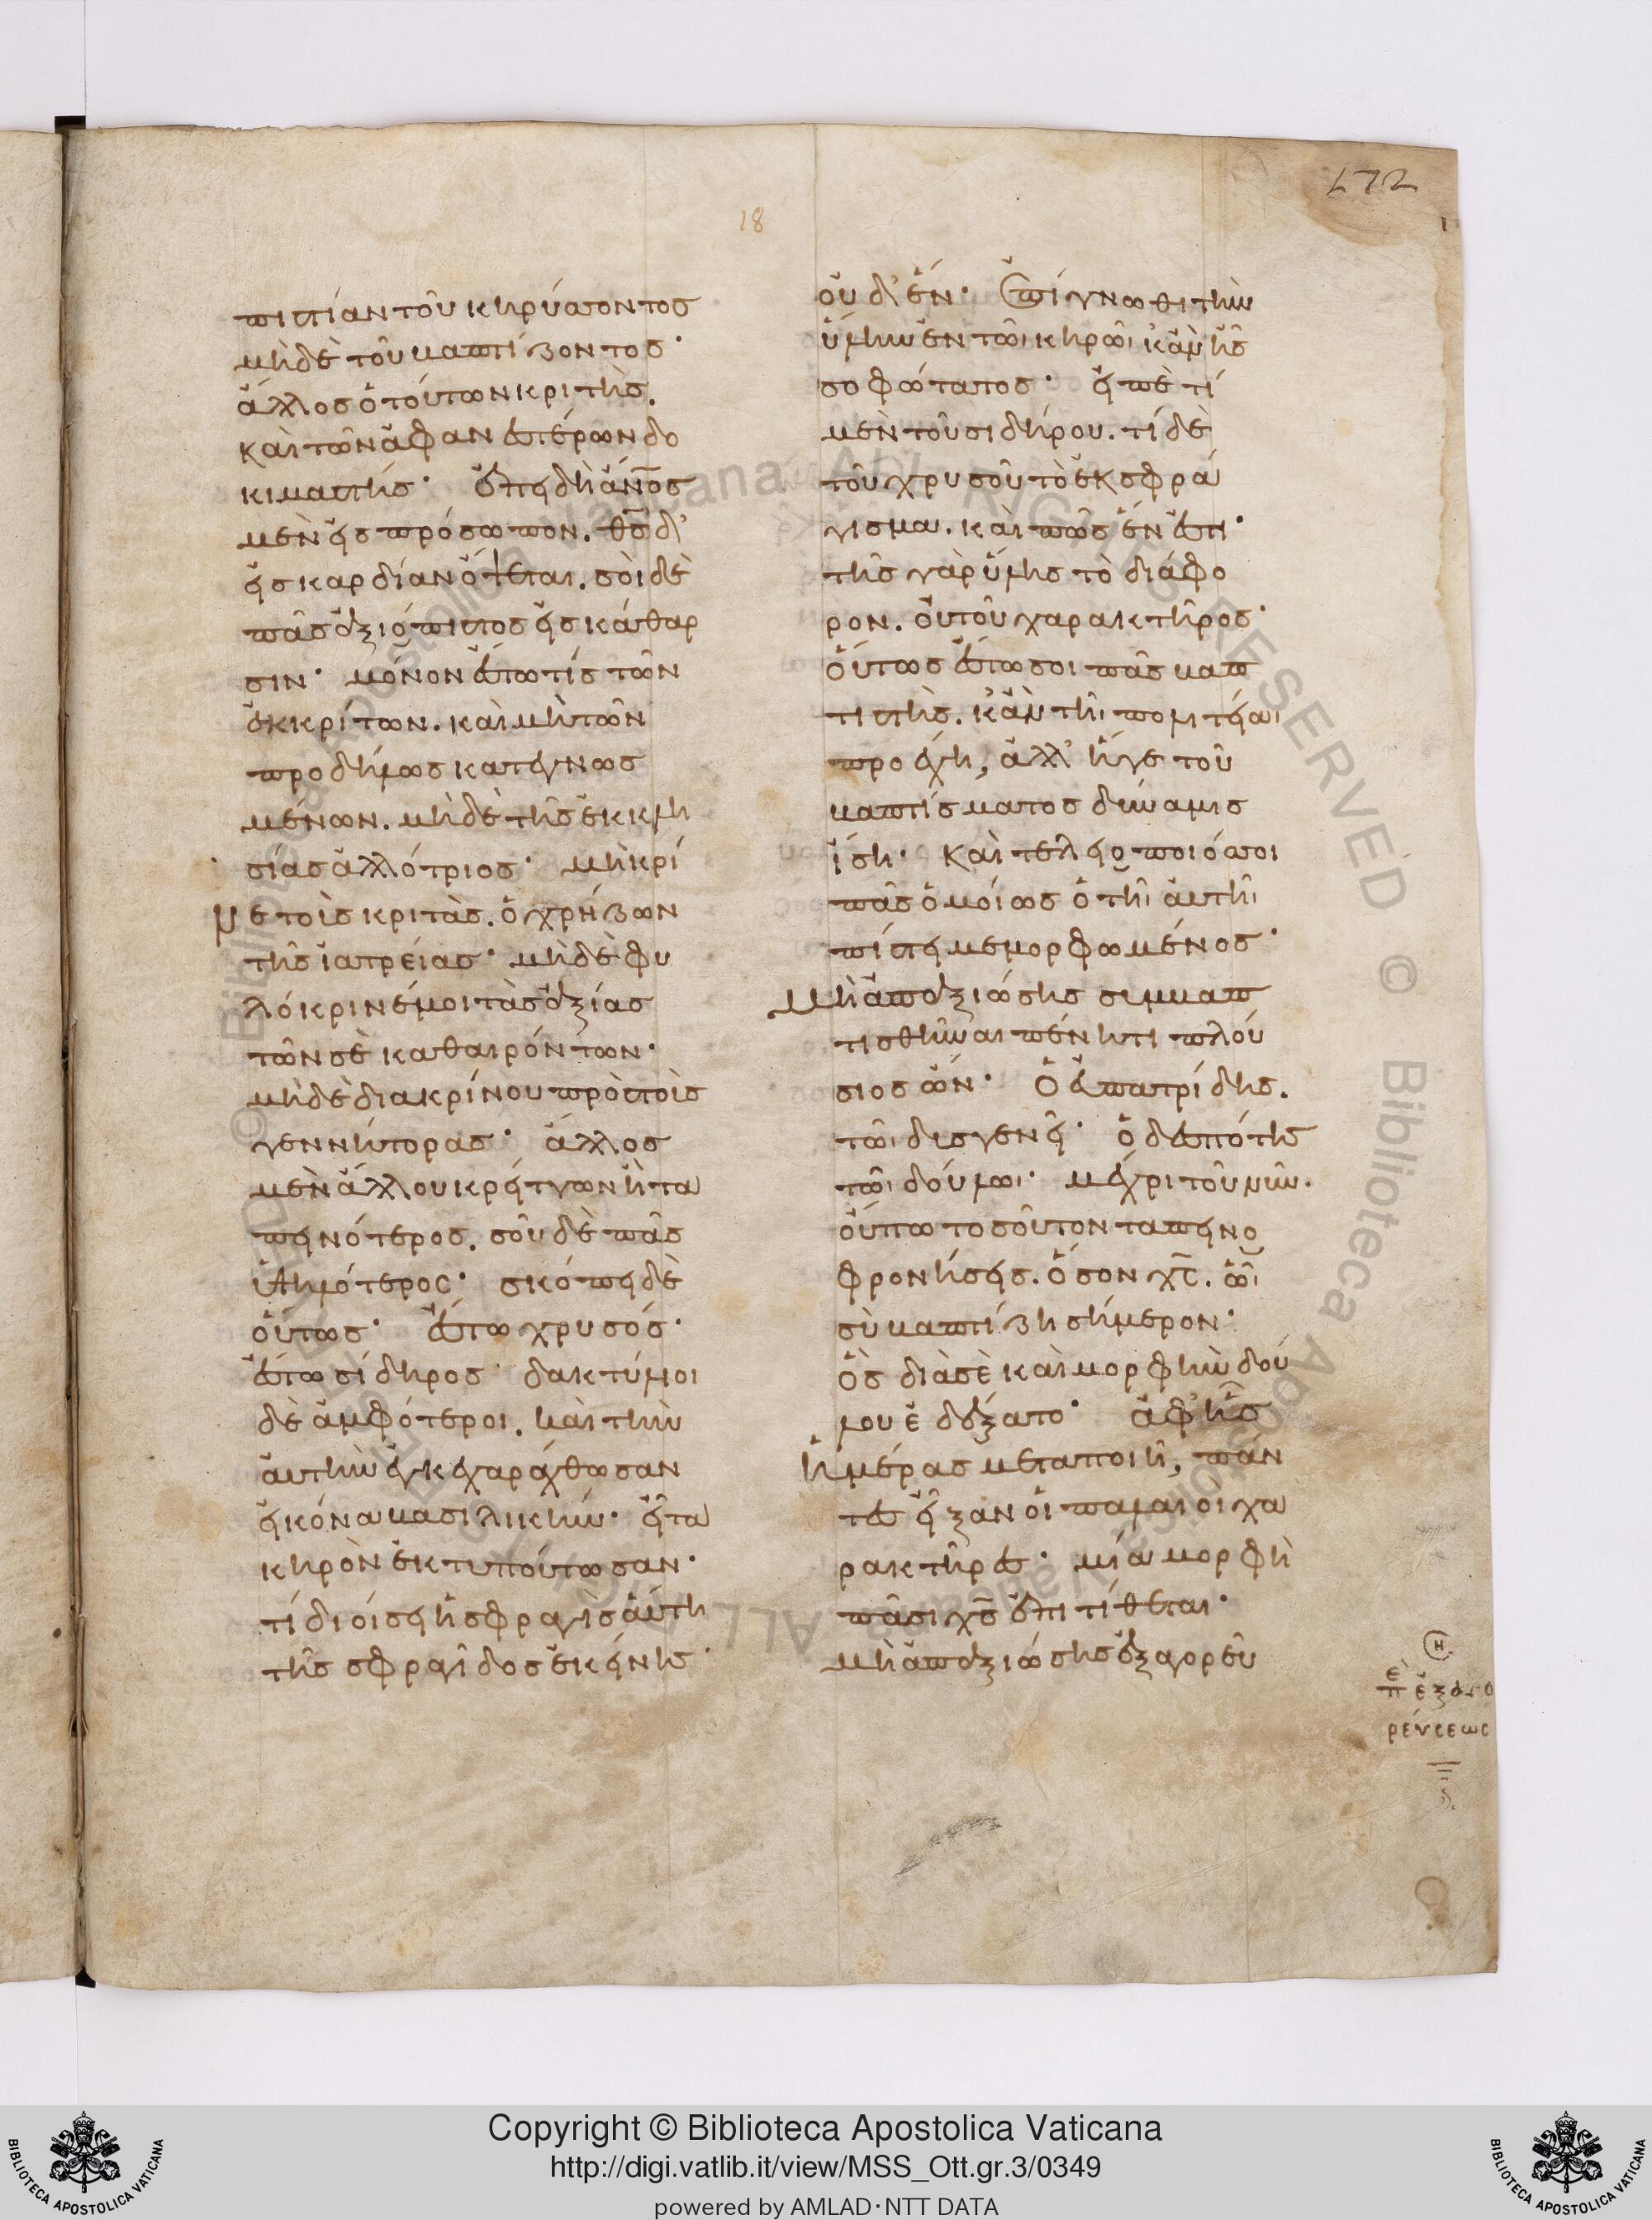 172
18
πιστίαν τοῦ κηρύσσοντος
μὴδὲ τοῦ βαπτίζοντος·
ἄλλος ὁ τούτων κριτὴς.
καὶ τῶν ἀφανεστέρων δο
κιμαστής· ἐπειδὴ ἄν̅ο̅ς̅
μὲν εἰς πρόσωπον. θ̅ς̅ δ᾽
εἰς καρδίαν ὄψεται. σοὶ δὲ
πᾶς ἀξιόπιστος εἰς κάθαρ
σιν· μόνον ἔστω τίς τῶν
ἐκκρίτων. καὶ μὴ τῶν
προδήμως κατεγνωσ
μένων. μὴδὲ τῆς ἐκκλη
σίας ἀλλότριος· μὴ κρί
νε τοὺς κριτὰς. ὁ χρήζων
τῆς ἰατρείας· μὴδὲ φυ
λόκρινέ μοι τὰς ἀξίας
τῶν σὲ καθαιρόντων·
μὴδὲ διακρίνου πρὸς τοὺς
γεννήτορας· ἄλλος
μὲν ἄλλου κρείττων ἢ τα
πεινότερος. σοῦ δὲ πᾶς
ὑψηλότερος· σκόπει δὲ
οὕτως· ἔστω χρυσός·
ἔστω σίδηρος· δακτύλιοι
δὲ ἀμφότεροι. καὶ τὴν
αὐτὴν ἐγκεχαράχθωσαν
εἰκόνα βασιλικήν· εἶτα
κηρὸν ἐκτυπούτωσαν·
τί διοίσει ἡ σφραγὶς αὕτη
τῆς σφραγῖδος ἐκείνης·
οὐδ᾽ ἕν· ἐπίγνωθι τὴν
ὕλην ἐν τῶι κηρῶι κἂν ἦς
σοφώτατος· εἰπὲ τί
μὲν τοῦ σιδήρου. τί δὲ
τοῦ χρυσοῦ τὸ ἐκσφρά
γισμα. καὶ πῶς ἕν ἐστι·
τῆς γὰρ ὕλης τὸ διάφο
ρον. οὐ τοῦ χαρακτῆρος·
οὕτως ἔστω σοι πᾶς βαπ
τιστὴς. κἂν τῆι πολιτείαι
προέχη, ἀλλ᾽ ἥγε τοῦ
βαπτίσματος δύναμις
ἴση· καὶ τελειοποιός σοι
πᾶς ὁμοίως ὁ τῆι αὐτῆι
πίστει μεμορφωμένος·
μὴ ἀπαξιώσης συμβαπ
τισθῆναι πένητι πλού
σιος ὤν· ὁ εὐπατρίδης.
τῶι δυσγενεῖ· ὁ δεσπότης
τῶι δούλωι· μέχρι τοῦ νῦν.
οὔπω τοσοῦτον ταπεινο
φρονήσεις. ὅσον χ̅ς̅. ὧι
σὺ βαπτίζη σήμερον·
ὃς διὰ σὲ καὶ μορφὴν δού
λου ἐδέξατο· ἀφ᾽ ἧς
ἡμέρας μεταποιῆ, πάν
τες εἶξαν οἱ παλαιοι χα
ρακτῆρες· μία μορφὴ
πᾶσι χ̅ς̅ ἐπιτίθεται·
μὴ ἀπαξιώσης ἐξαγορεῦ
Η
π̅ὲ ἐξαγο
ρεύσεως